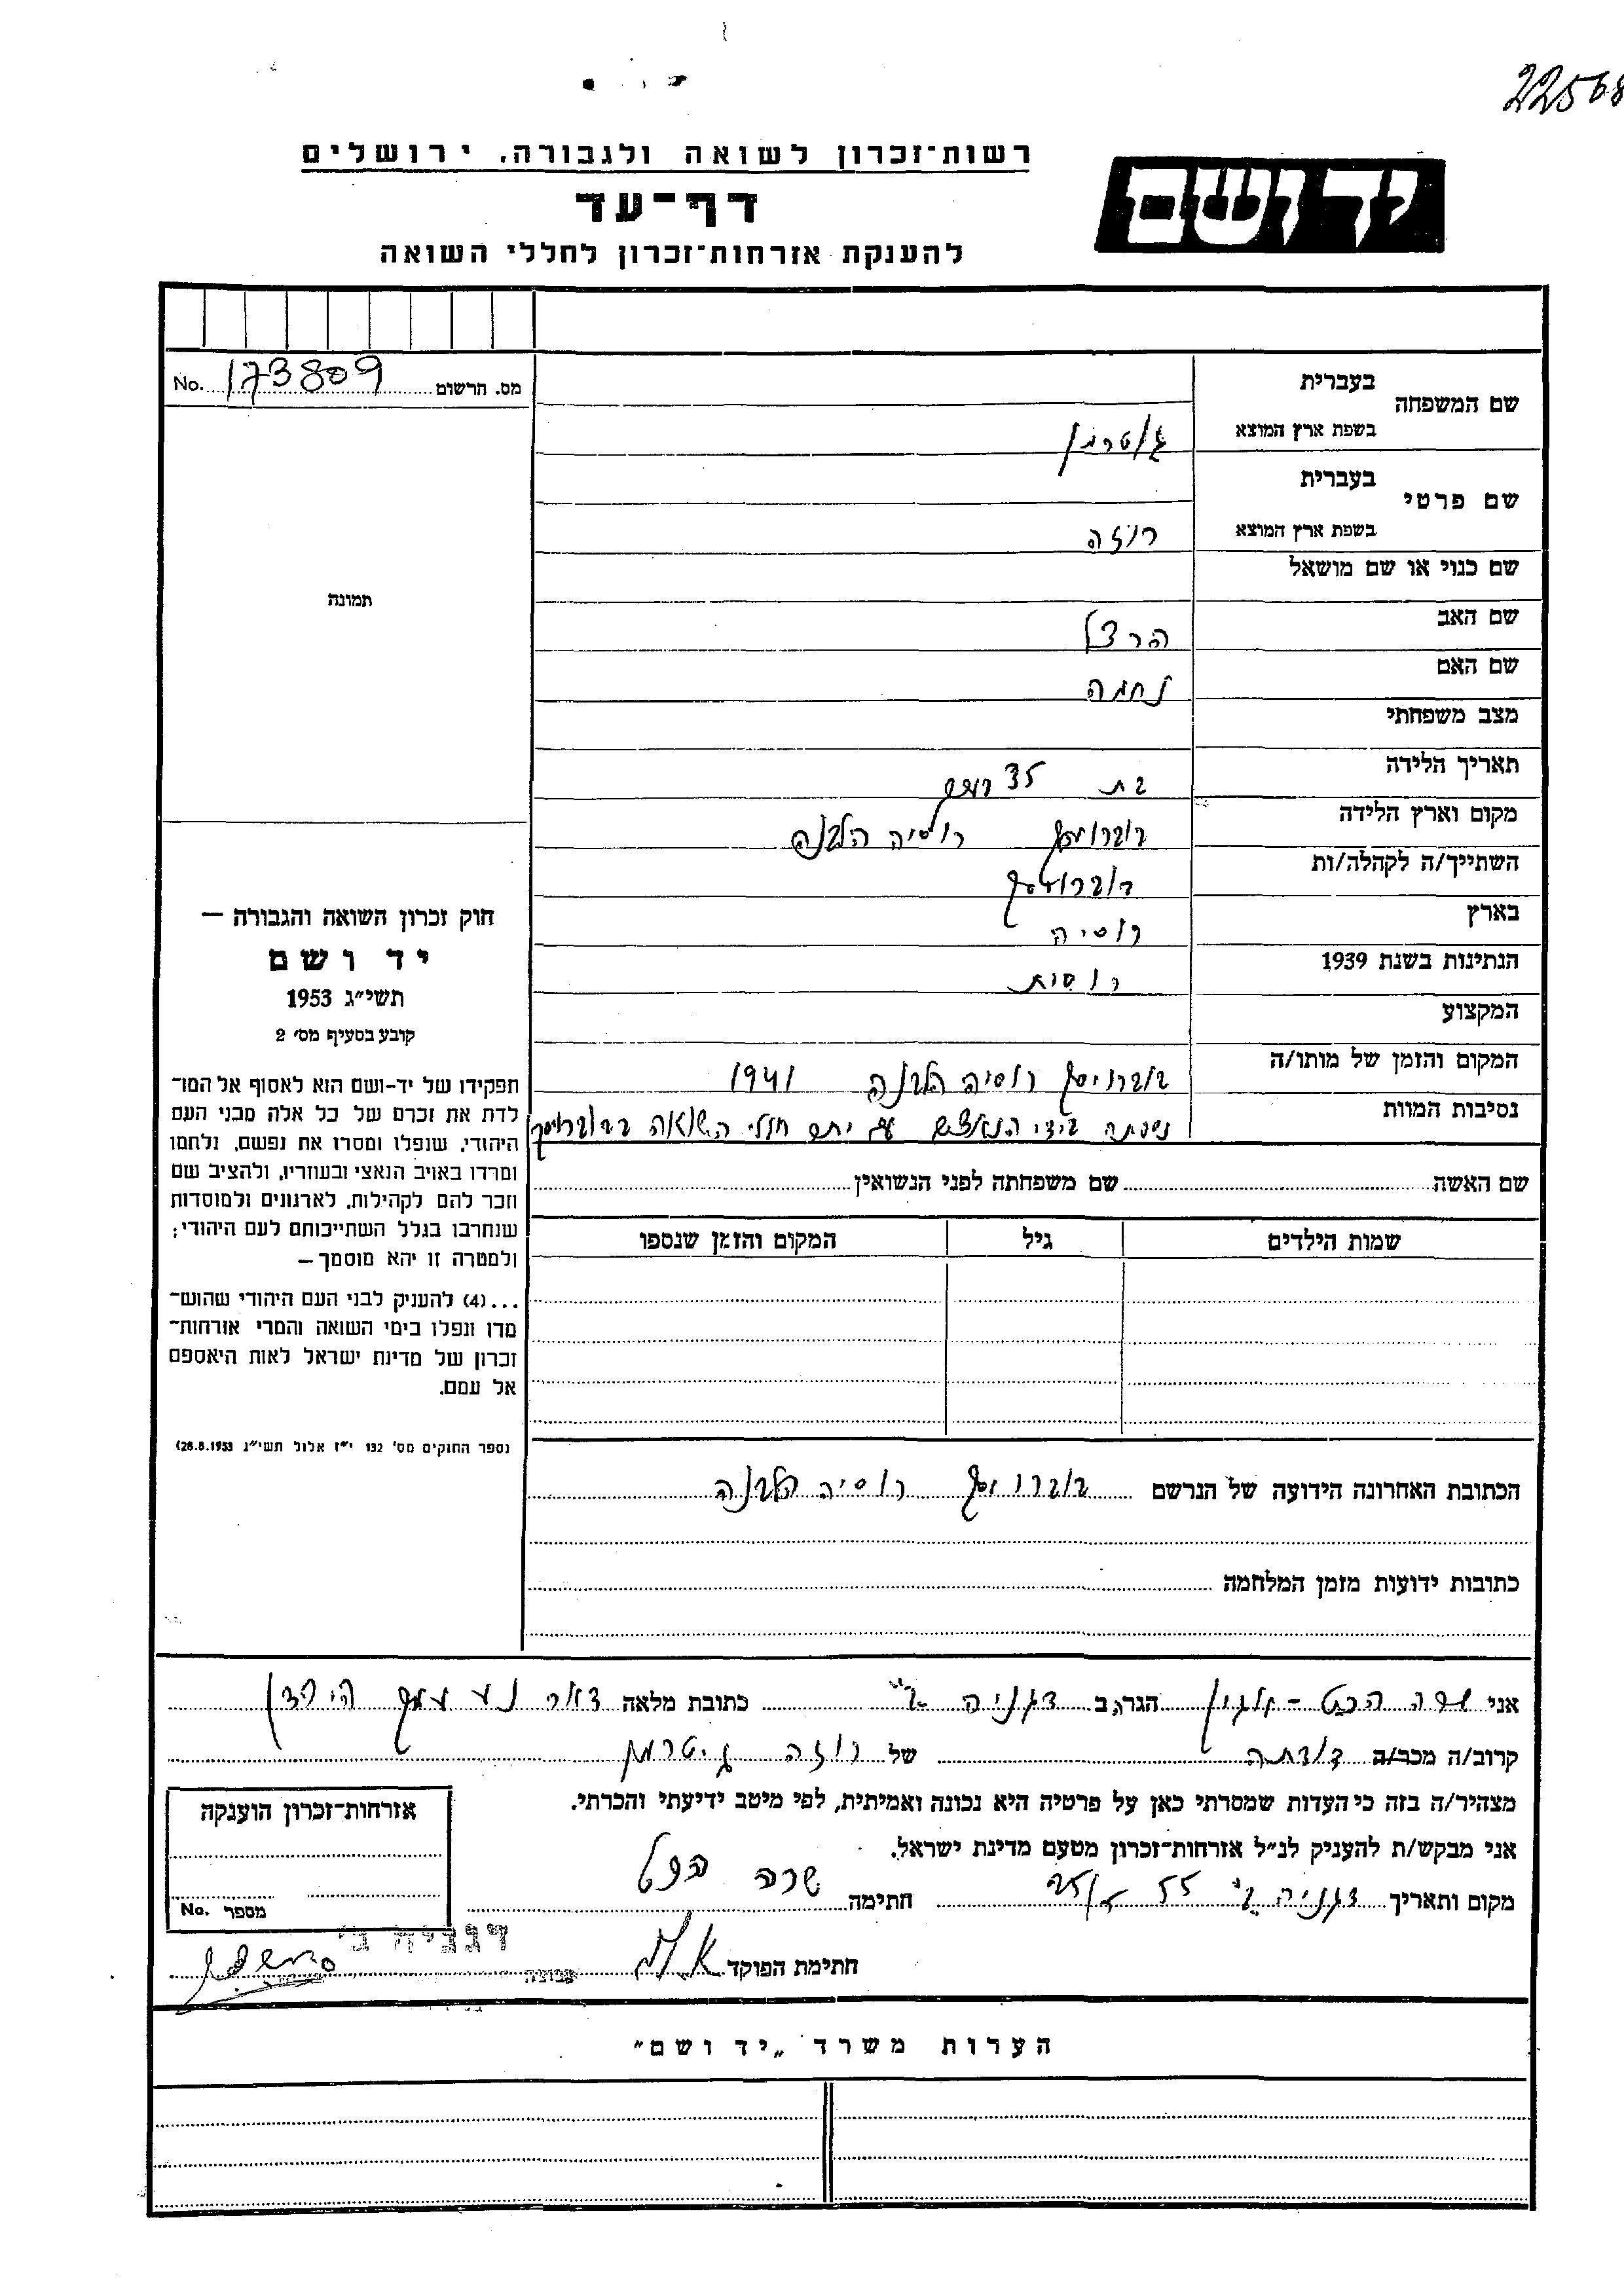 22568
רשות־זכרון לשואה ולגבורה, ירושלים
יד ושם
דף־עד
להענקת אזרחות־זכרון לחללי השואה
מס. הרשום 173809 No.
שם המשפחה
בעברית
בשפת ארץ המוצא גוטרמן
שם פרטי
בעברית
בשפת ארץ המוצא רוזה
שם כנוי או שם מושאל
שם האב הרצל
שם האם נחמה
מצב משפחתי
תאריך הלידה בת 35
מקום וארץ הלידה בוברויסק רוסיה הלבנה
השתייך/ה לקהלה/ות בוברויסק
בארץ רוסיה
הנתינות בשנת 1939 רוסית
המקצוע
המקום והזמן של מותו/ה בוברויסק רוסיה הלבנה 1941
נסיבות המוות נספתה בידי הנאצים עם יתר חללי השואה בבוברויסק
שם האשה שם משפחתה לפני הנשואין
שמות הילדים גיל המקום והזמן שנספו
הכתובת האחרונה הידועה של הנרשם בוברויסק רוסיה הלבנה
כתובות ידועות מזמן המלחמה
תמונה
חוק זכרון השואה והגבורה —
יד ושם
תשי״ג 1953
קובע בסעיף מס׳ 2
תפקידו של יד-ושם הוא לאסוף אל המו־
לדת את זכרם של כל אלה מבני העם
היהודי, שנפלו ומסרו את נפשם, נלחמו
ומרדו באויב הנאצי ובעוזריו, ולהציב שם
וזכר להם לקהילות, לארגונים ולמוסדות
שנחרבו בגלל השתייכותם לעם היהודי;
ולמטרה זו יהא מוסמך —
...(4) להעניק לבני העם היהודי שהוש־
מדו ונפלו בימי השואה והמרי אזרחות־
זכרון של מדינת ישראל לאות היאספם
אל עמם.
(ספר החוקים מס׳ 132 י״ז אלול תשי״ג 28.8.1953)
אני שרה הכט - הגר/ה ב דגניה ב׳ כתובת מלאה דאר נע עמק הירדן
קרוב/ה מכר/ה דודתה של רוזה גוטרמן
מצהיר/ה בזה כי העדות שמסרתי כאן על פרטיה היא נכונה ואמיתית, לפי מיטב ידיעתי והכרתי.
אני מבקש/ת להעניק לנ״ל אזרחות־זכרון מטעם מדינת ישראל.
מקום ותאריך דגניה ב׳ 55 חתימה שרה הכט
חתימת הפוקד
דגניה ב׳
אזרחות־זכרון הוענקה
מספר No.
הערות משרד „יד ושם״